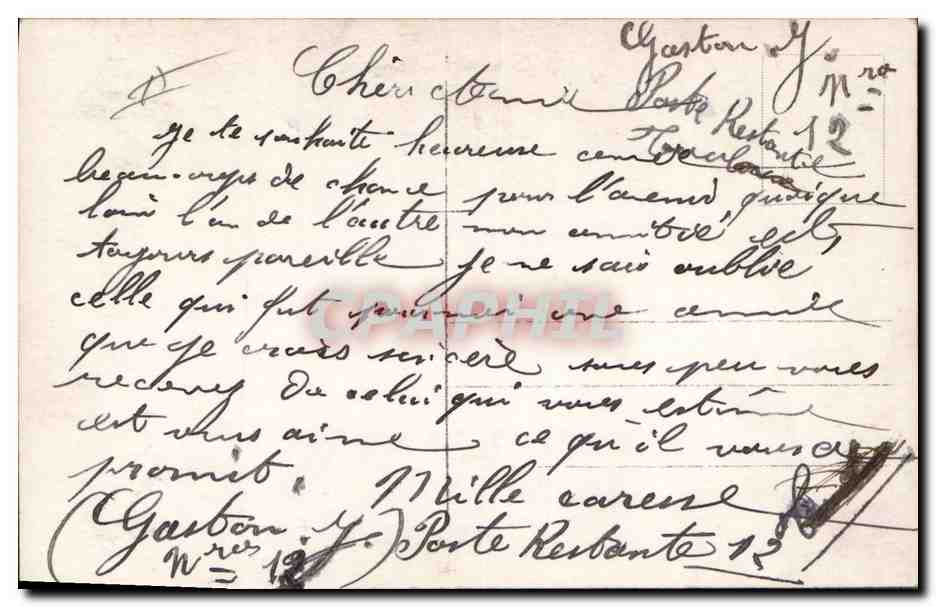 Gaston. J.
Nros
12
Chère amie
Poste Restante
je te souhaite heureuse année
beaucoups de chance pour l'avenir quoique
loin l'un de l'autre mon amitié est,
toujours pareille je ne sais oublié
celle qui fut pour moi une amie
que je crois sincère sous peu vous
recevez de celui qui vous estime
est vous aime ce qu'il vous a
promit. Mille caresse
(Gaston. J.) Poste Restante 12
Nros 12
CPAPHIL